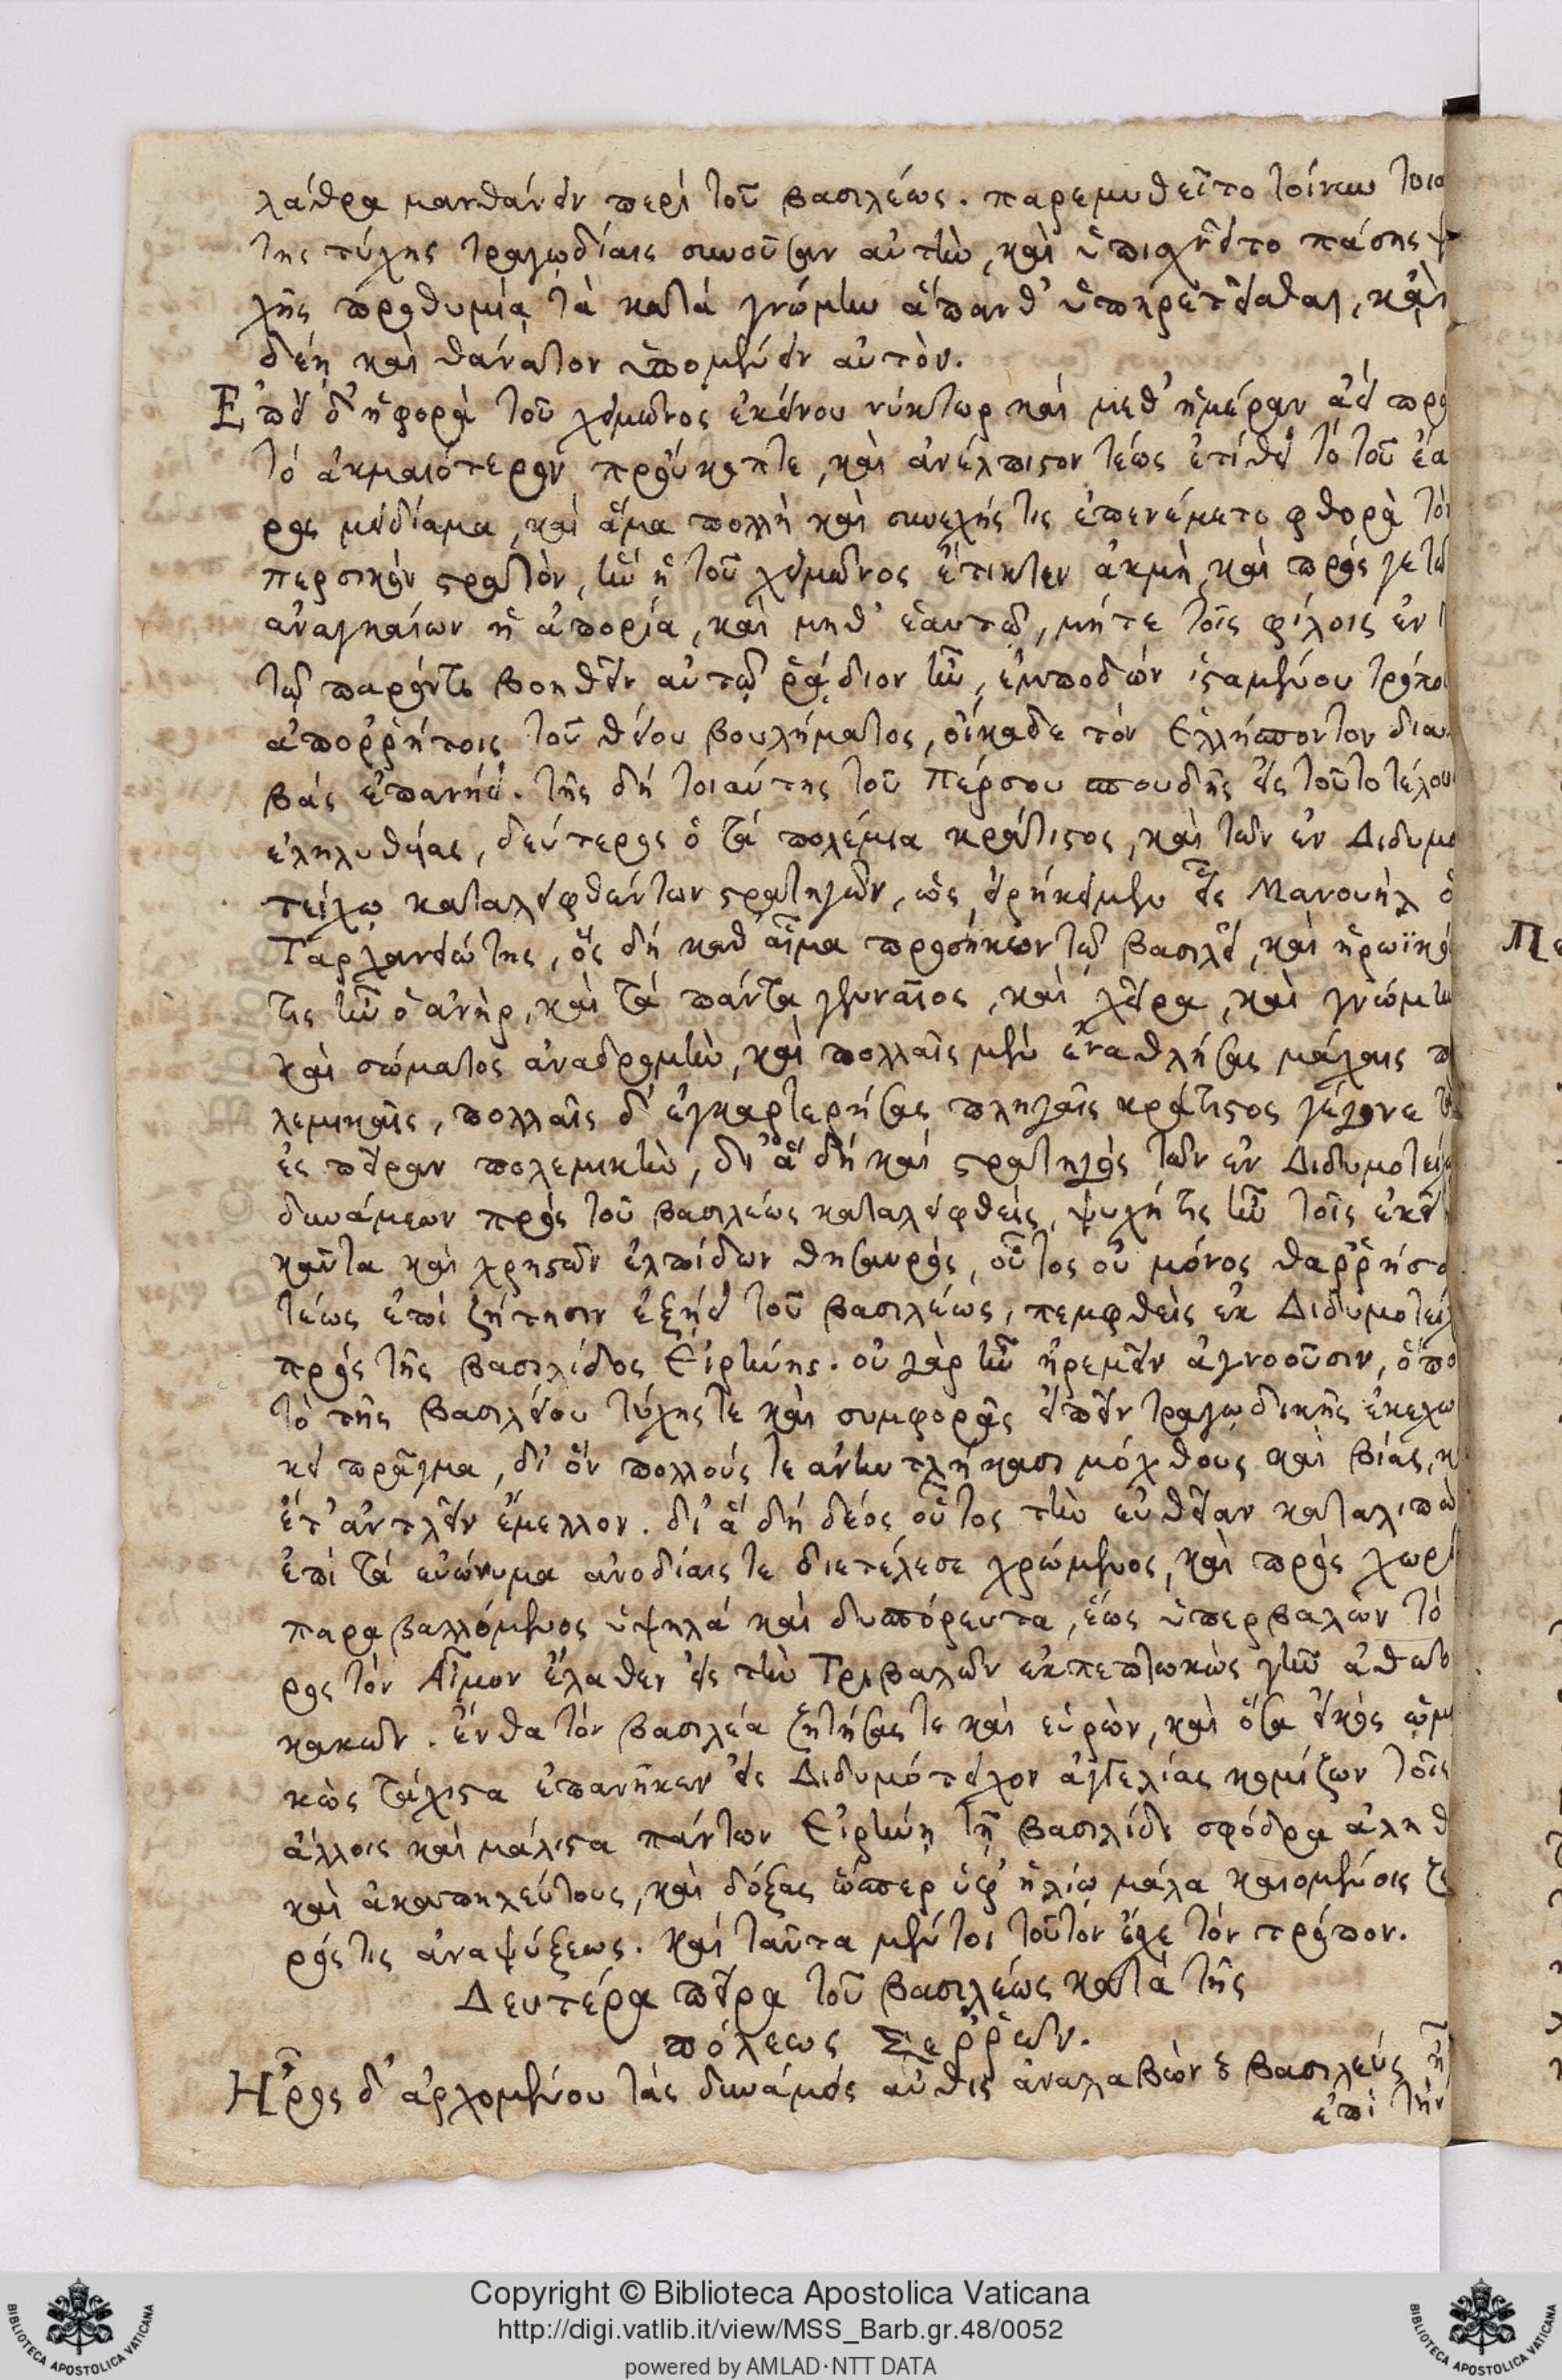 λάθρα μανθάνειν περὶ τοῦ βασιλέως. παρεμυθεῖτο τοίνυν
της τύχης τραγωδίαις συνοῦσαν αὐτὴν, καὶ ὑπισχνεῖτο πάσης
χῆς προθυμίᾳ τὰ κατὰ γνώμην ἅπανθ' ὑπηρετεῖσθαι, κἂν
δέῃ καὶ θάνατον ὑπομένειν αὐτὸν.
Ἐπεὶ δ' ἡ φορὰ τοῦ χειμῶνος ἐκείνου νύκτωρ καὶ μεθ' ἡμέραν ἀεὶ πρὸ
τὸ ἀκμαιότερον προὔκοπτε, καὶ ἀνέλπιστον τέως ἐτίθει τὸ τοῦ ἔα
ρος μειδίαμα, καὶ ἅμα πολλὴ καὶ συνεχής τις ἐπενέμετο φθορὰ τὸν
περσικὸν στρατὸν, ἣν ἡ τοῦ χειμῶνος ἔτικτεν ἀκμὴ, καὶ πρός γε τῶν
ἀναγκαίων ἡ ἀπορία, καὶ μηθ' ἑαυτῷ, μήτε τοῖς φίλοις ἐν
τῷ παρόντι βοηθεῖν αὐτῷ ῥᾴδιον ἦν, ἐμποδὼν ἱσταμένου τρόποις
ἀποῤῥήτοις τοῦ θείου βουλήματος, οἴκαδε τὸν Ἑλλήσποντον δια
βὰς ἐπανῄει. τῆς δὴ τοιαύτης τοῦ Πέρσου σπουδῆς εἰς τοῦτο τέλους
ἐληλυθυίας, δεύτερος ὁ τὰ πολέμια κράτιστος, καὶ τῶν ἐν Διδυμο
τείχῳ καταλειφθέντων στρατηγῶν, ὡς εἰρήκειμεν εἷς Μανουὴλ ὁ
Ταρχανειώτης, ὃς δὴ καθ' αἷμα προσήκων τῷ βασιλεῖ, καὶ ἡρωϊκός
τις ἦν ὁ ἀνὴρ, καὶ τὰ πάντα γενναῖος, καὶ χεῖρα, καὶ γνώμην
καὶ σώματος ἀναδρομὴν, καὶ πολλαῖς μὲν ἐναθλήσας μάχαις π
λεμικαῖς, πολλαῖς δ' ἐγκαρτερήσας πληγαῖς κράτιστος γέγονε τὰ
ἐς πεῖραν πολεμικὴν, δι' ἃ δὴ καὶ στρατηγὸς τῶν ἐν Διδυμοτείχῳ
δυνάμεων πρὸς τοῦ βασιλέως καταλειφθεὶς, ψυχή τις ἦν τοῖς ἐκεῖ
καῦτα καὶ χρηστῶν ἐλπίδων θησαυρὸς, οὗτος οὖν μόνος θαῤῥήσα
τέως ἐπὶ ζήτησιν ἐξῄει τοῦ βασιλέως, πεμφθεὶς ἐκ Διδυμοτείχ
πρὸς τῆς βασιλίδος Εἰρήνης. οὐ γὰρ ἦν ἠρεμεῖν ἀγνοοῦσιν, ὅπο
τὸ τῆς βασιλείου τύχης τε καὶ συμφορᾶς εἰπεῖν τραγῳδικῆς ἐκεχω
κει πρᾶγμα, δι' ὃν πολλούς τε ἀνηντλήκασι μόχθους καὶ βίας, κ
ἔτ' ἀντλεῖν ἔμελλον. δι' ἃ δὴ δέος οὗτος τὴν εὐθεῖαν καταλιπὼ
ἐπὶ τὰ εὐώνυμα ἀνοδίαις τε διετέλεσε χρώμενος, καὶ πρὸς χωρί
παραβαλλόμενος ὑψηλὰ καὶ δυσπόρευτα, ἕως ὑπερβαλὼν τὸ
ρος τὸν Αἷμον ἔλαθεν εἰς τὴν Τριβαλῶν ἐκπεπτωκὼς γῆν ἀθῷο
κακῶν. ἔνθα τὸν βασιλέα ζητήσας τε καὶ εὑρὼν, καὶ ὅσα εἰκὸς ὡμι
κὼς τάχιστα ἐπανῆκεν εἰς Διδυμότειχον ἀγγελίας κομίζων τοῖς
ἄλλοις καὶ μάλιστα πάντων Εἰρήνῃ τῇ βασιλίδι σφόδρα ἀληθ
καὶ ἀκαπηλεύτους, καὶ δόξας ὥσπερ ὑφ' ἡλίῳ μάλα καιομένοις ζε
ρός τις ἀναψύξεως. Καὶ ταῦτα μέντοι τοῦτον ἔσχε τὸν τρόπον.
Δευτέρα πεῖρα τοῦ βασιλέως κατὰ τῆς
πόλεως Σεῤῥῶν.
Ἦρος δ' ἀρχομένου τὰς δυνάμεις αὖθις ἀναλαβὼν ὁ βασιλεὺς ᾔ
ἐπὶ τὴν